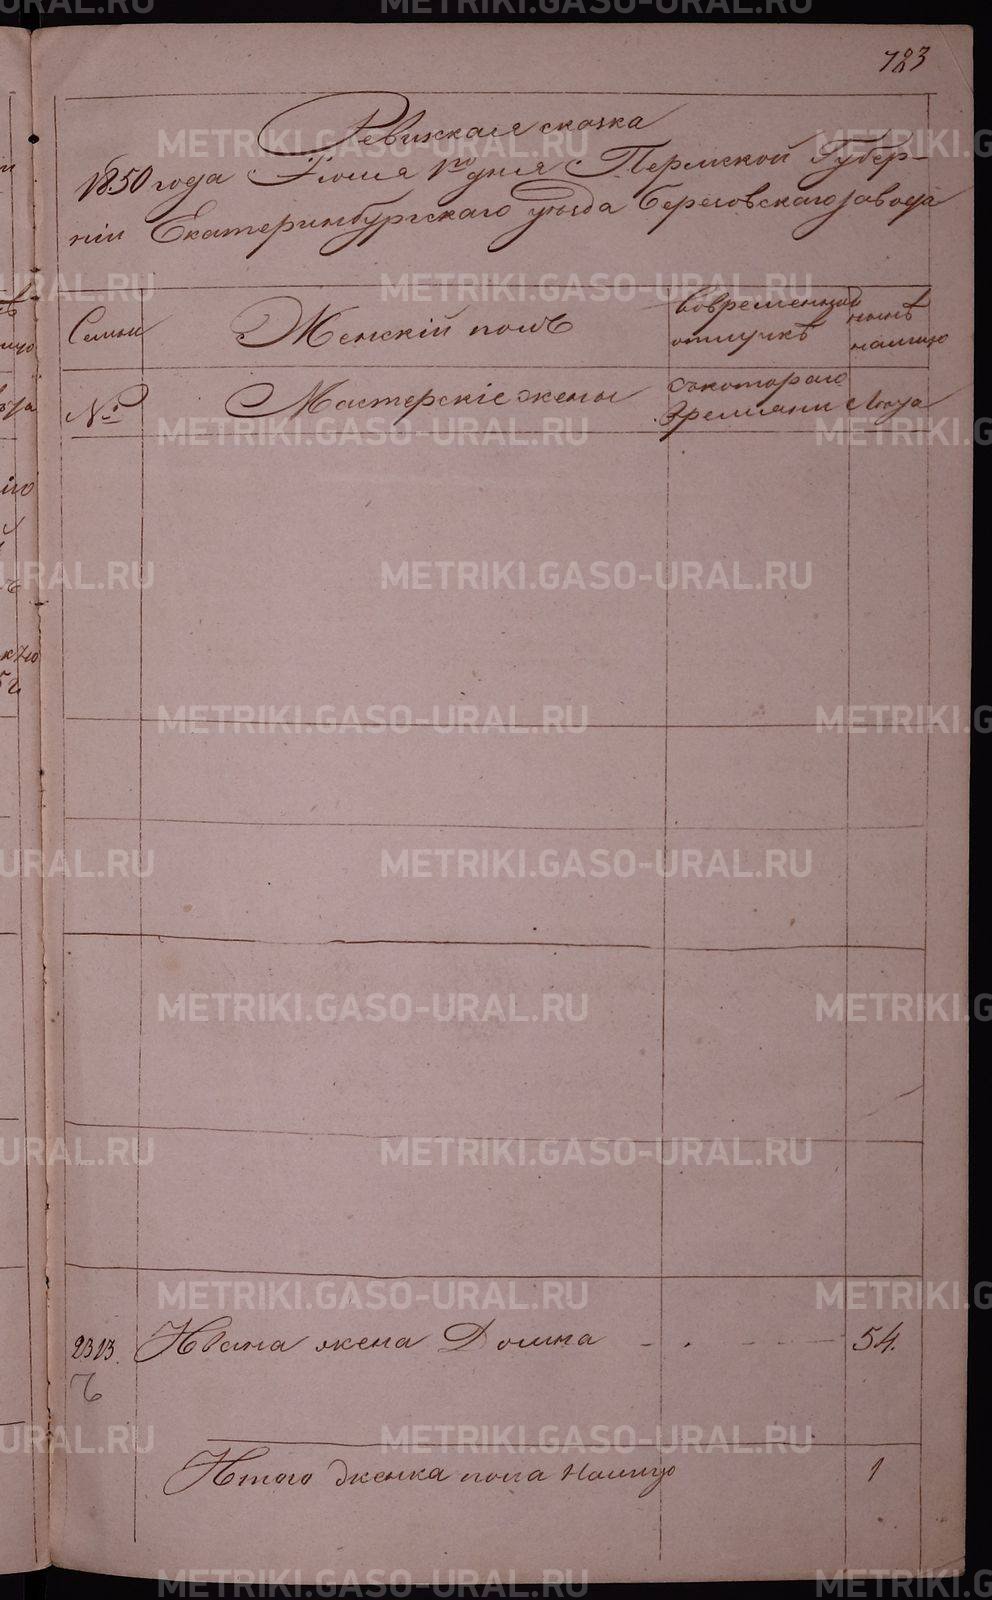 723
Ревижская сказка
1850 года Іюля 1го дня Пермской Губер-
ніи Екатеринбургскаго уѣзда Березовскаго завода
Семьи
Женскій полъ
Вовременной
отлучкѣ
нынѣ
налицо
№
Мастерскіе жены
съкотораго
времяни
Лѣта
2313.
Ивана жена Домна
54.
Итого Женска пола Налицо
1
METRIKI.GASO-URAL.RU